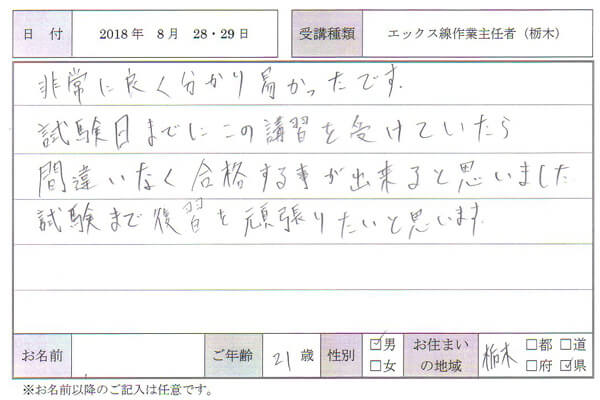 日付 2018年 8月 28・29日 受講種類 エックス線作業主任者（栃木）
非常に良く分かり易かったです.
試験日までにこの講習を受けていたら
間違いなく合格する事が出来ると思いました
試験まで復習を頑張りたいと思います.
お名前 ご年齢 21歳 性別 ☑男 □女 お住まいの地域 栃木 □都 □道 □府 ☑県
※お名前以降のご記入は任意です。